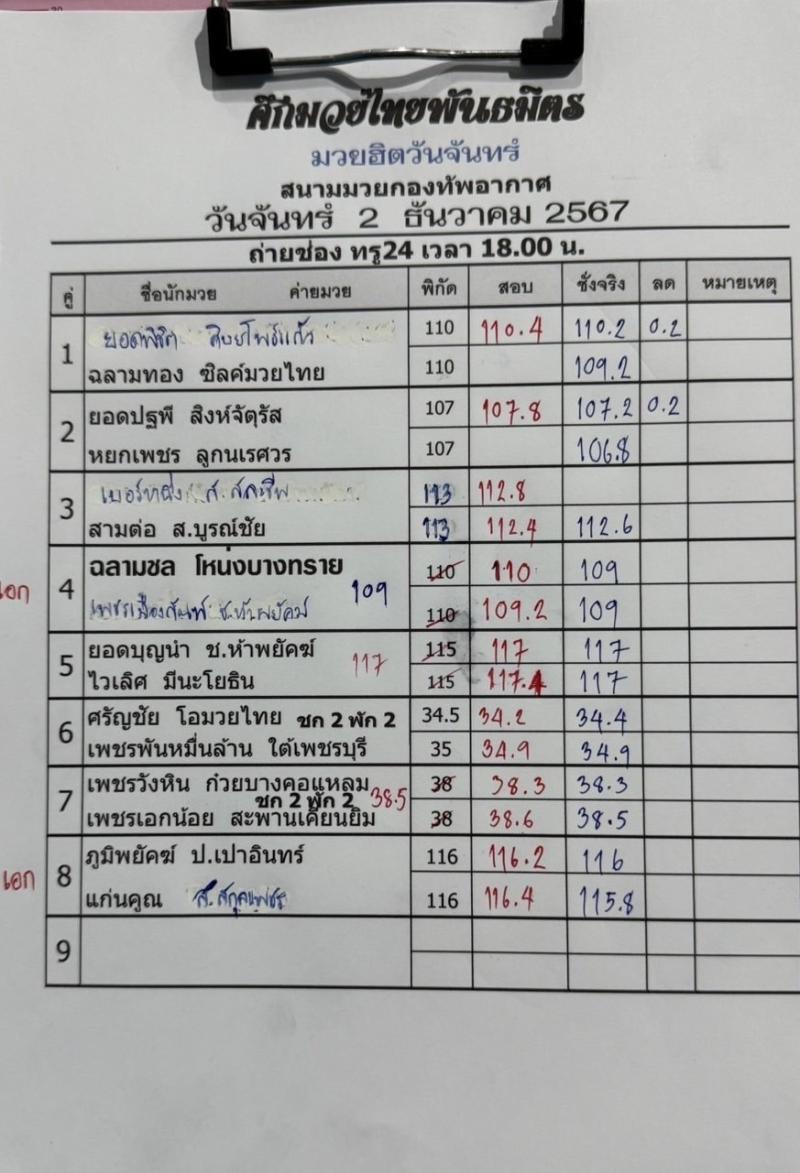 ศึกมวยไทยพันธมิตร
มวยฮิตวันจันทร์
สนามมวยกองทัพอากาศ
วันจันทร์ 2 ธันวาคม 2567
ถ่ายช่อง ทรู24 เวลา 18.00 น.
คู่ ชื่อนักมวย ค่ายมวย พิกัด สอบ ชั่งจริง ลด หมายเหตุ
1 ยอดพิชิต ศิษย์โพธิ์แก้ว 110 110.4 110.2 0.2
ฉลามทอง ซิลค์มวยไทย 110 109.2
2 ยอดปฐพี สิงห์จัตุรัส 107 107.8 107.2 0.2
หยกเพชร ลูกนเรศวร 107 106.8
3 113 112.8
สามต่อ ส.บูรณ์ชัย 113 112.4 112.6
เอก 4 ฉลามชล โหน่งบางทราย 109 110 110 109
ช.ห้าพยัคฆ์ 110 109.2 109
5 ยอดบุญนำ ช.ห้าพยัคฆ์ 117 115 117 117
ไวเลิศ มีนะโยธิน 115 117.4 117
6 ศรัญชัย โอมวยไทย ชก 2 พัก 2 34.5 34.2 34.4
เพชรพันหมื่นล้าน ใต้เพชรบุรี 35 34.9 34.9
7 เพชรวังหิน ก๋วยบางคอแหลม 38 38.3 38.3
ชก 2 พัก 2 38.5
เพชรเอกน้อย สะพานเคียนยิม 38 38.6 38.5
เอก 8 ภูมิพยัคฆ์ ป.เปาอินทร์ 116 116.2 116
แก่นคูณ ส.สกุลเพชร 116 116.4 115.8
9